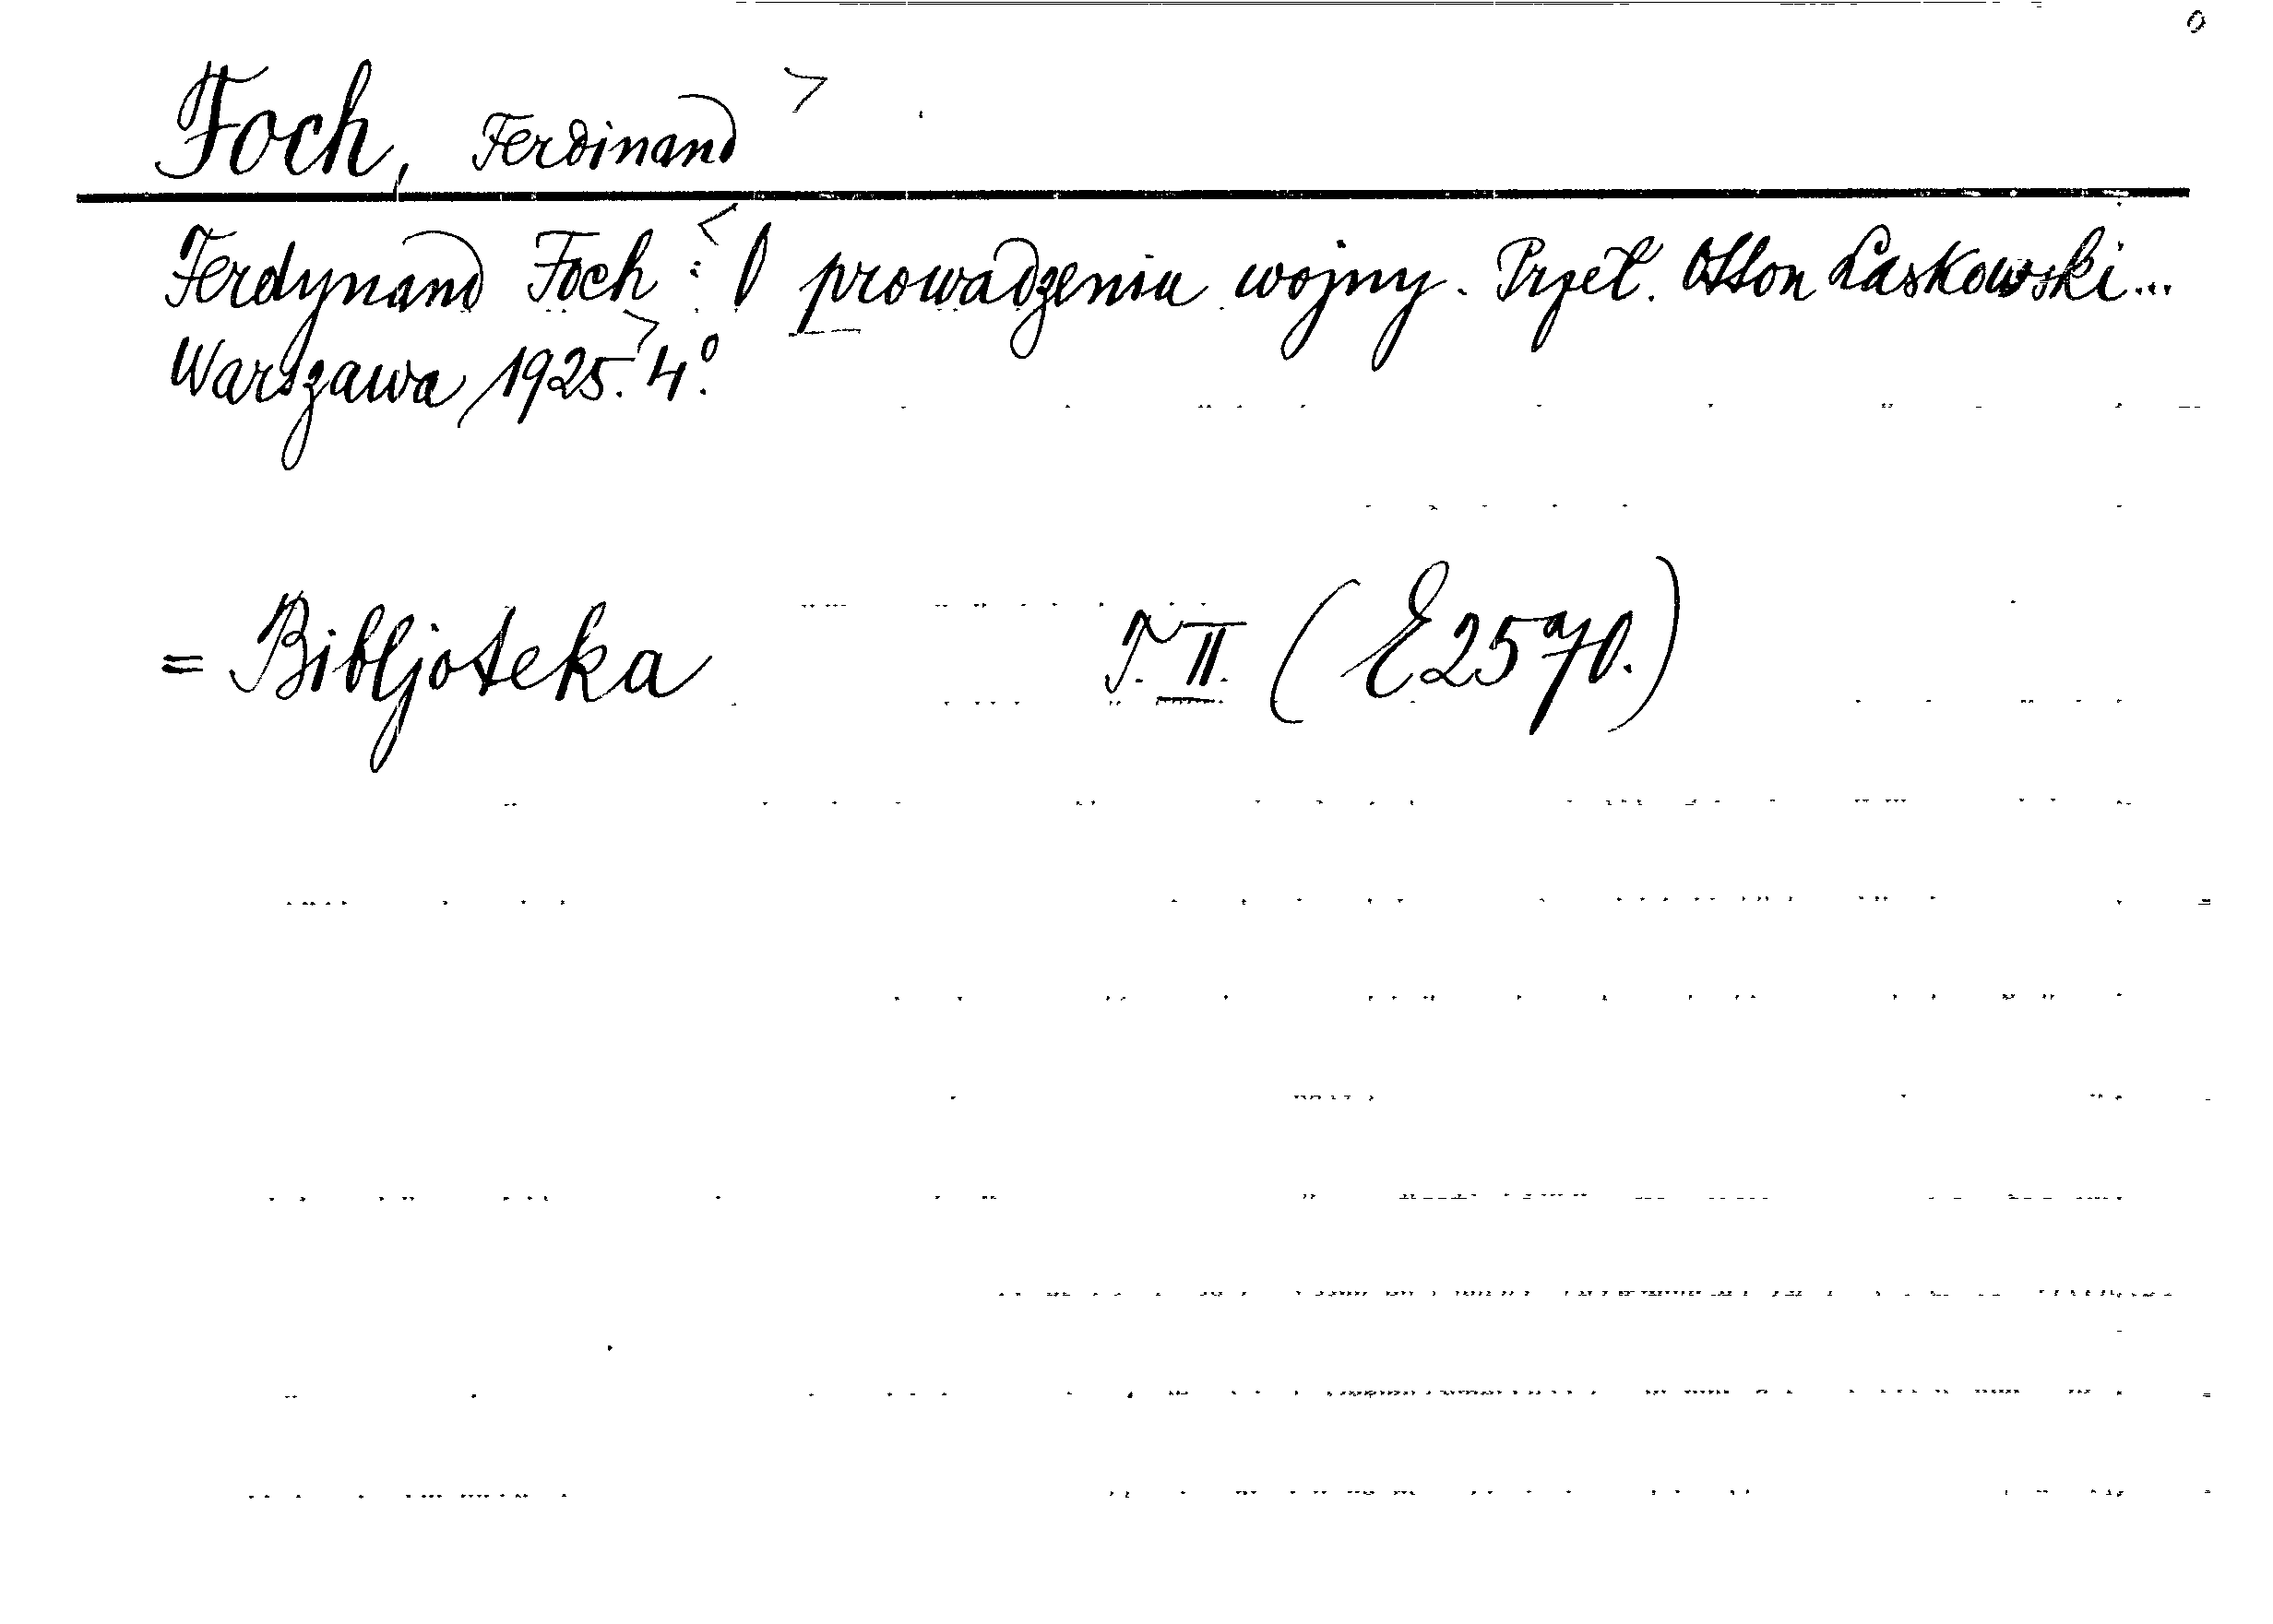 Foch, Ferdinand >
Ferdynand Foch : < O prowadzeniu wojny. Przeł. Otton Laskowski...
Warszawa, 1925. > 4º.
= Bibljoteka T. II. (E 2570.)